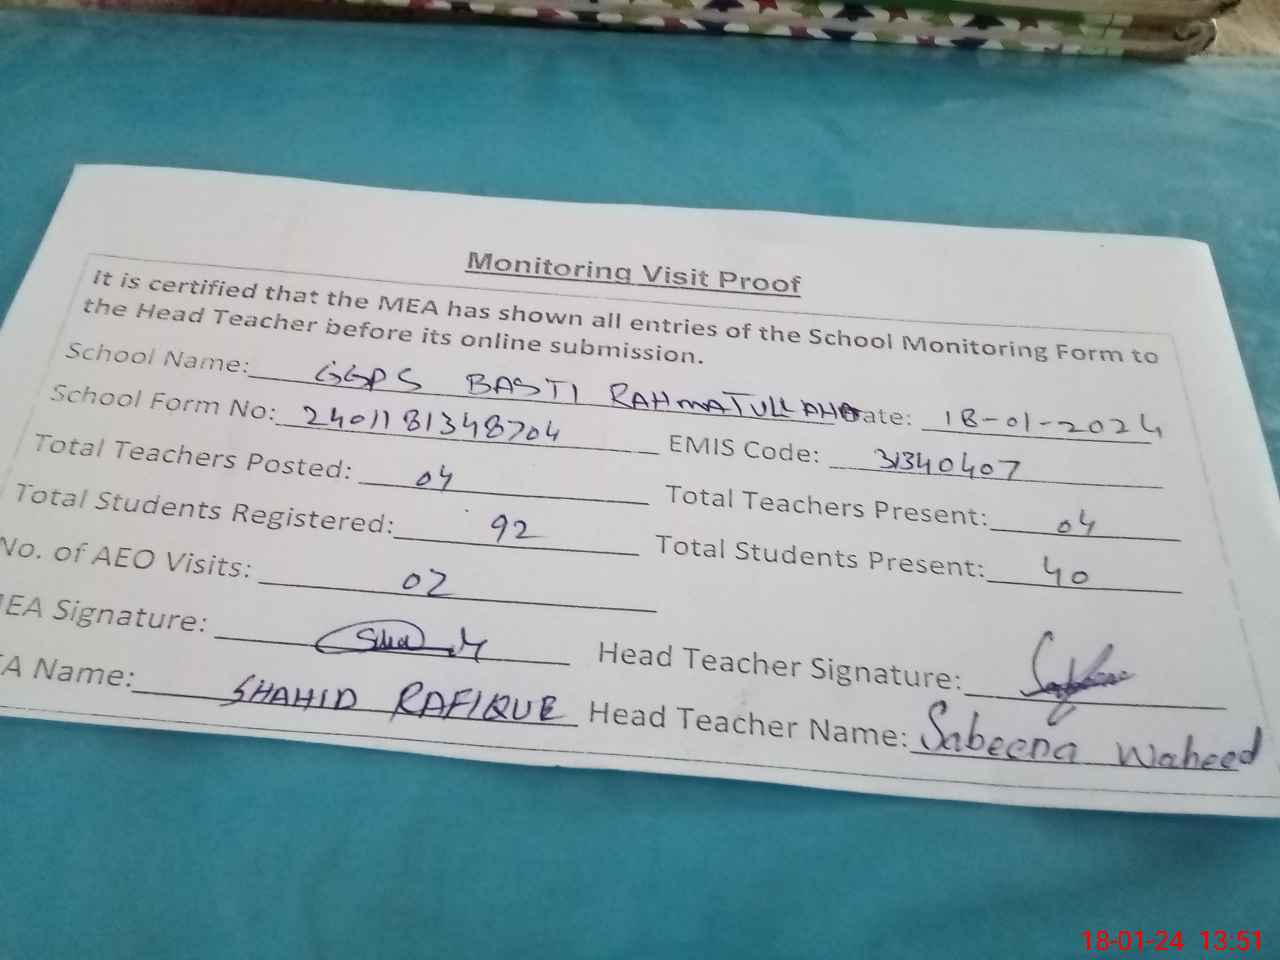 Monitoring Visit Proof
It is certified that the MEA has shown all entries of the School Monitoring Form to
the Head Teacher before its online submission.
School Name: GGPS BASTI RAHMATULLAH ate: 18-01-2024
School Form No: 2401181348704 EMIS Code: 31340407
Total Teachers Posted: 04 Total Teachers Present: 04
Total Students Registered: 92 Total Students Present: 40
No. of AEO Visits: 02
EA Signature: Head Teacher Signature:
A Name: SHAHID RAFIQUE Head Teacher Name: Sabeena Waheed
18-01-24 13:51